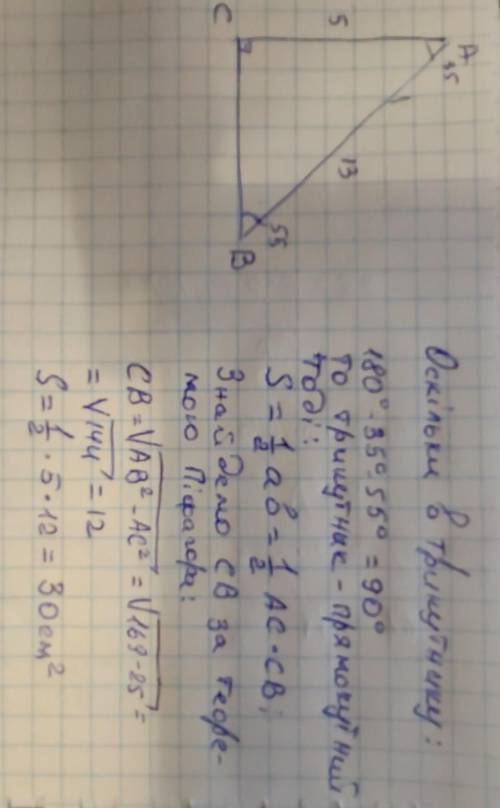 C
5
A
35
13
55
B
Оскільки в трикутнику:
180°-35°-55° = 90°
то трикутник - прямокутний
тоді:
S = 1/2 ab = 1/2 AC·CB;
Знайдемо CB за теоре-
мою Піфагора:
CB = √AB² - AC² = √169-25 =
= √144 = 12
S = 1/2 · 5 · 12 = 30см²